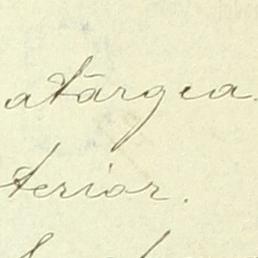 atârgea.
terior.